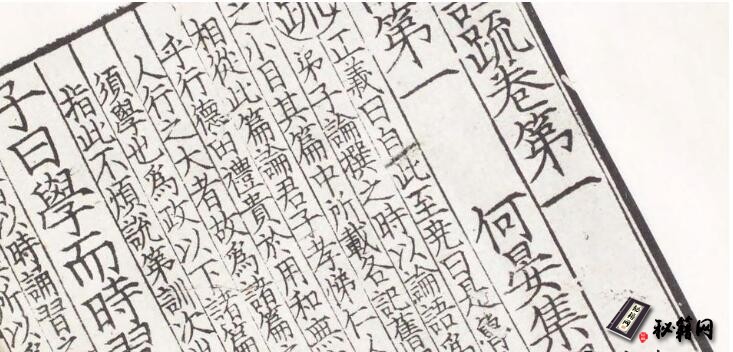 疏卷第一
何晏集
第一
正義曰自此至堯曰是魯
弟子論撰之時以論語為
之小自其篇中所載各記舊
相從此篇論君子孝悌仁人
乎行德由禮貴於用和無
人行之大者故為諸篇之
須學也為政以下諸篇
指此不煩說第訓次
子曰學而時習
以時誦習之
所以
秘籍网